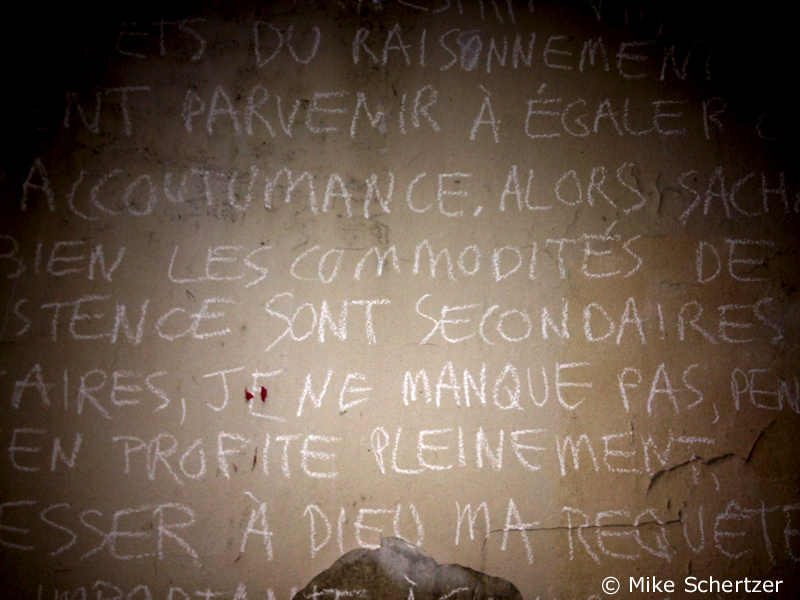 ETS DU RAISONNEMENT
NT PARVENIR À ÉGALER
ACCOUTUMANCE, ALORS SACH
BIEN LES COMMODITÉS DE
STENCE SONT SECONDAIRES
AIRES, JE NE MANQUE PAS, PEN
EN PROFITE PLEINEMENT
ESSER À DIEU MA REQUÊTE
© Mike Schertzer